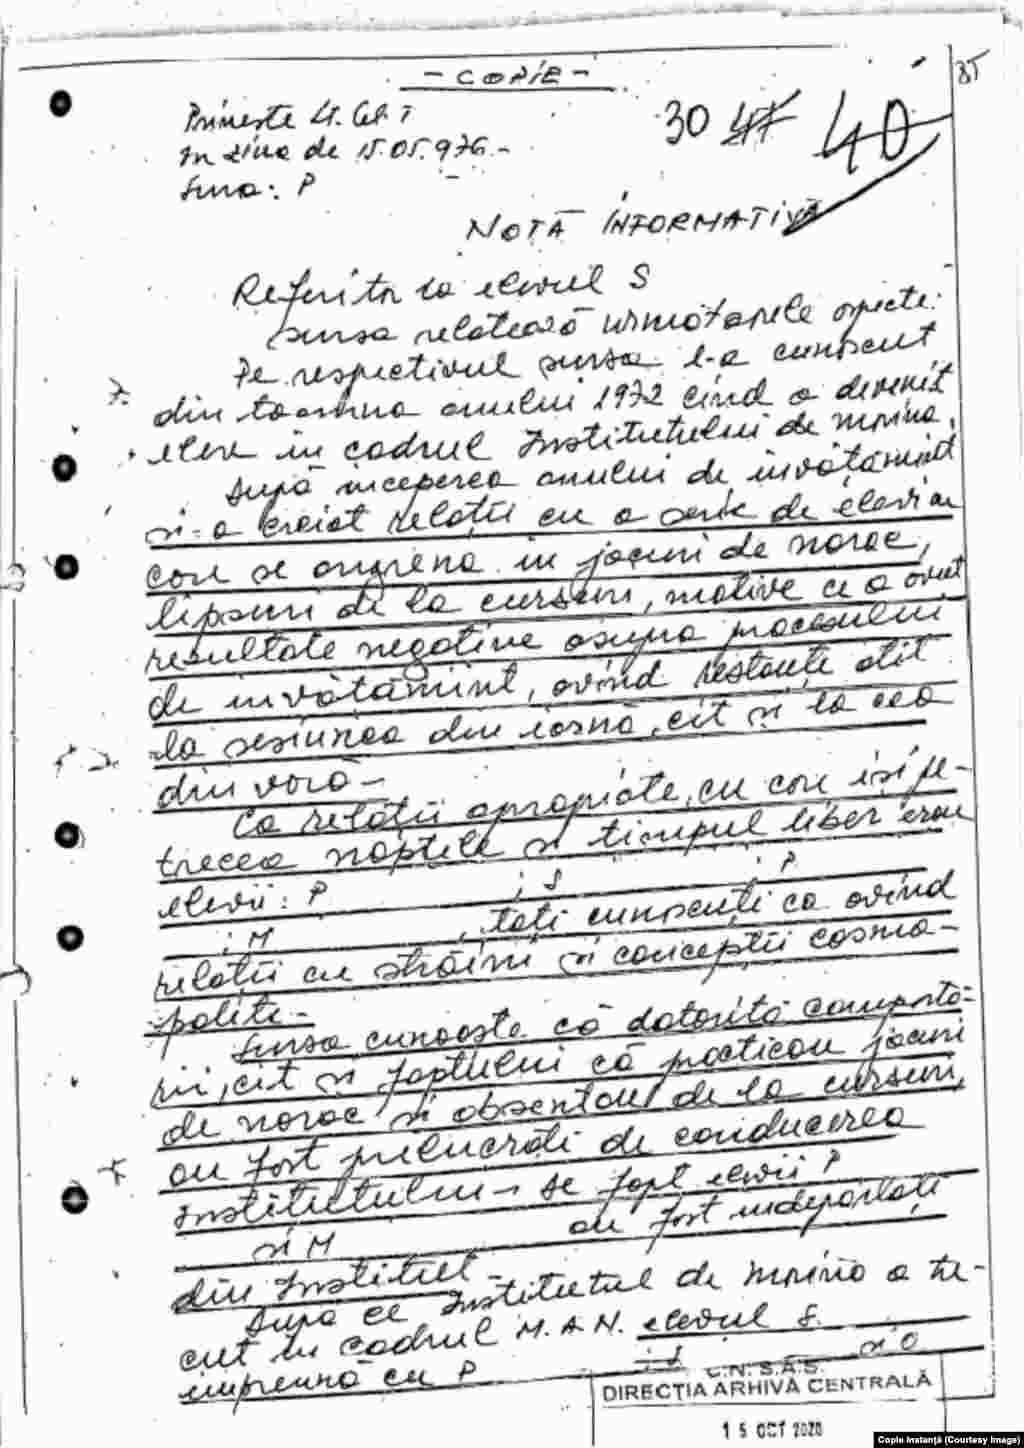 - COPIE -
85
Primește Lt. Col. T
În ziua de 15.05.976.-
Sursa: P
30 47 40
NOTĂ INFORMATIVĂ
Referitor la elevul S
sursa relatează următoarele aspecte:
Pe respectivul sursa l-a cunoscut
din toamna anului 1972 cînd a devenit
elev în cadrul Institutului de marină.
După începerea anului de învățămînt
și-a creiat relații cu o serie de elevi
care se angrena în jocuri de noroc,
lipsuri de la cursuri, motive ce a avut
rezultate negative asupra procesului
de învățămînt, avînd restanțe atît
la sesiunea din iarnă, cît și la cea
din vară.-
Ca relații apropiate, cu care își pe-
trecea nopțile și timpul liber erau
elevii: P ; S ; P
; M , toți cunoscuți ca avînd
relații cu străini și concepții cosmo-
polite.-
Sursa cunoaște că datorită comportă-
rii, cît și faptului că practicau jocuri
de noroc și absentau de la cursuri,
au fost prelucrați de conducerea
Institutului - de fapt elevii P
și M au fost îndepărtați
din Institut.-
După ce Institutul de marină a tre-
cut în cadrul M.A.N. elevul S.
împreună cu P ; S și O
C.N.S.A.S.
DIRECȚIA ARHIVA CENTRALĂ
15 OCT 2020
Copie instanță (Courtesy Image)